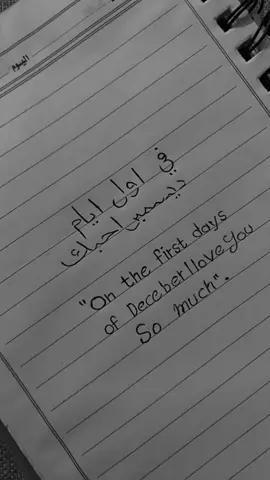 اليوم
في اول ايام
ديسمبر احبك
"On the first days
of Deceber I love you
So much".